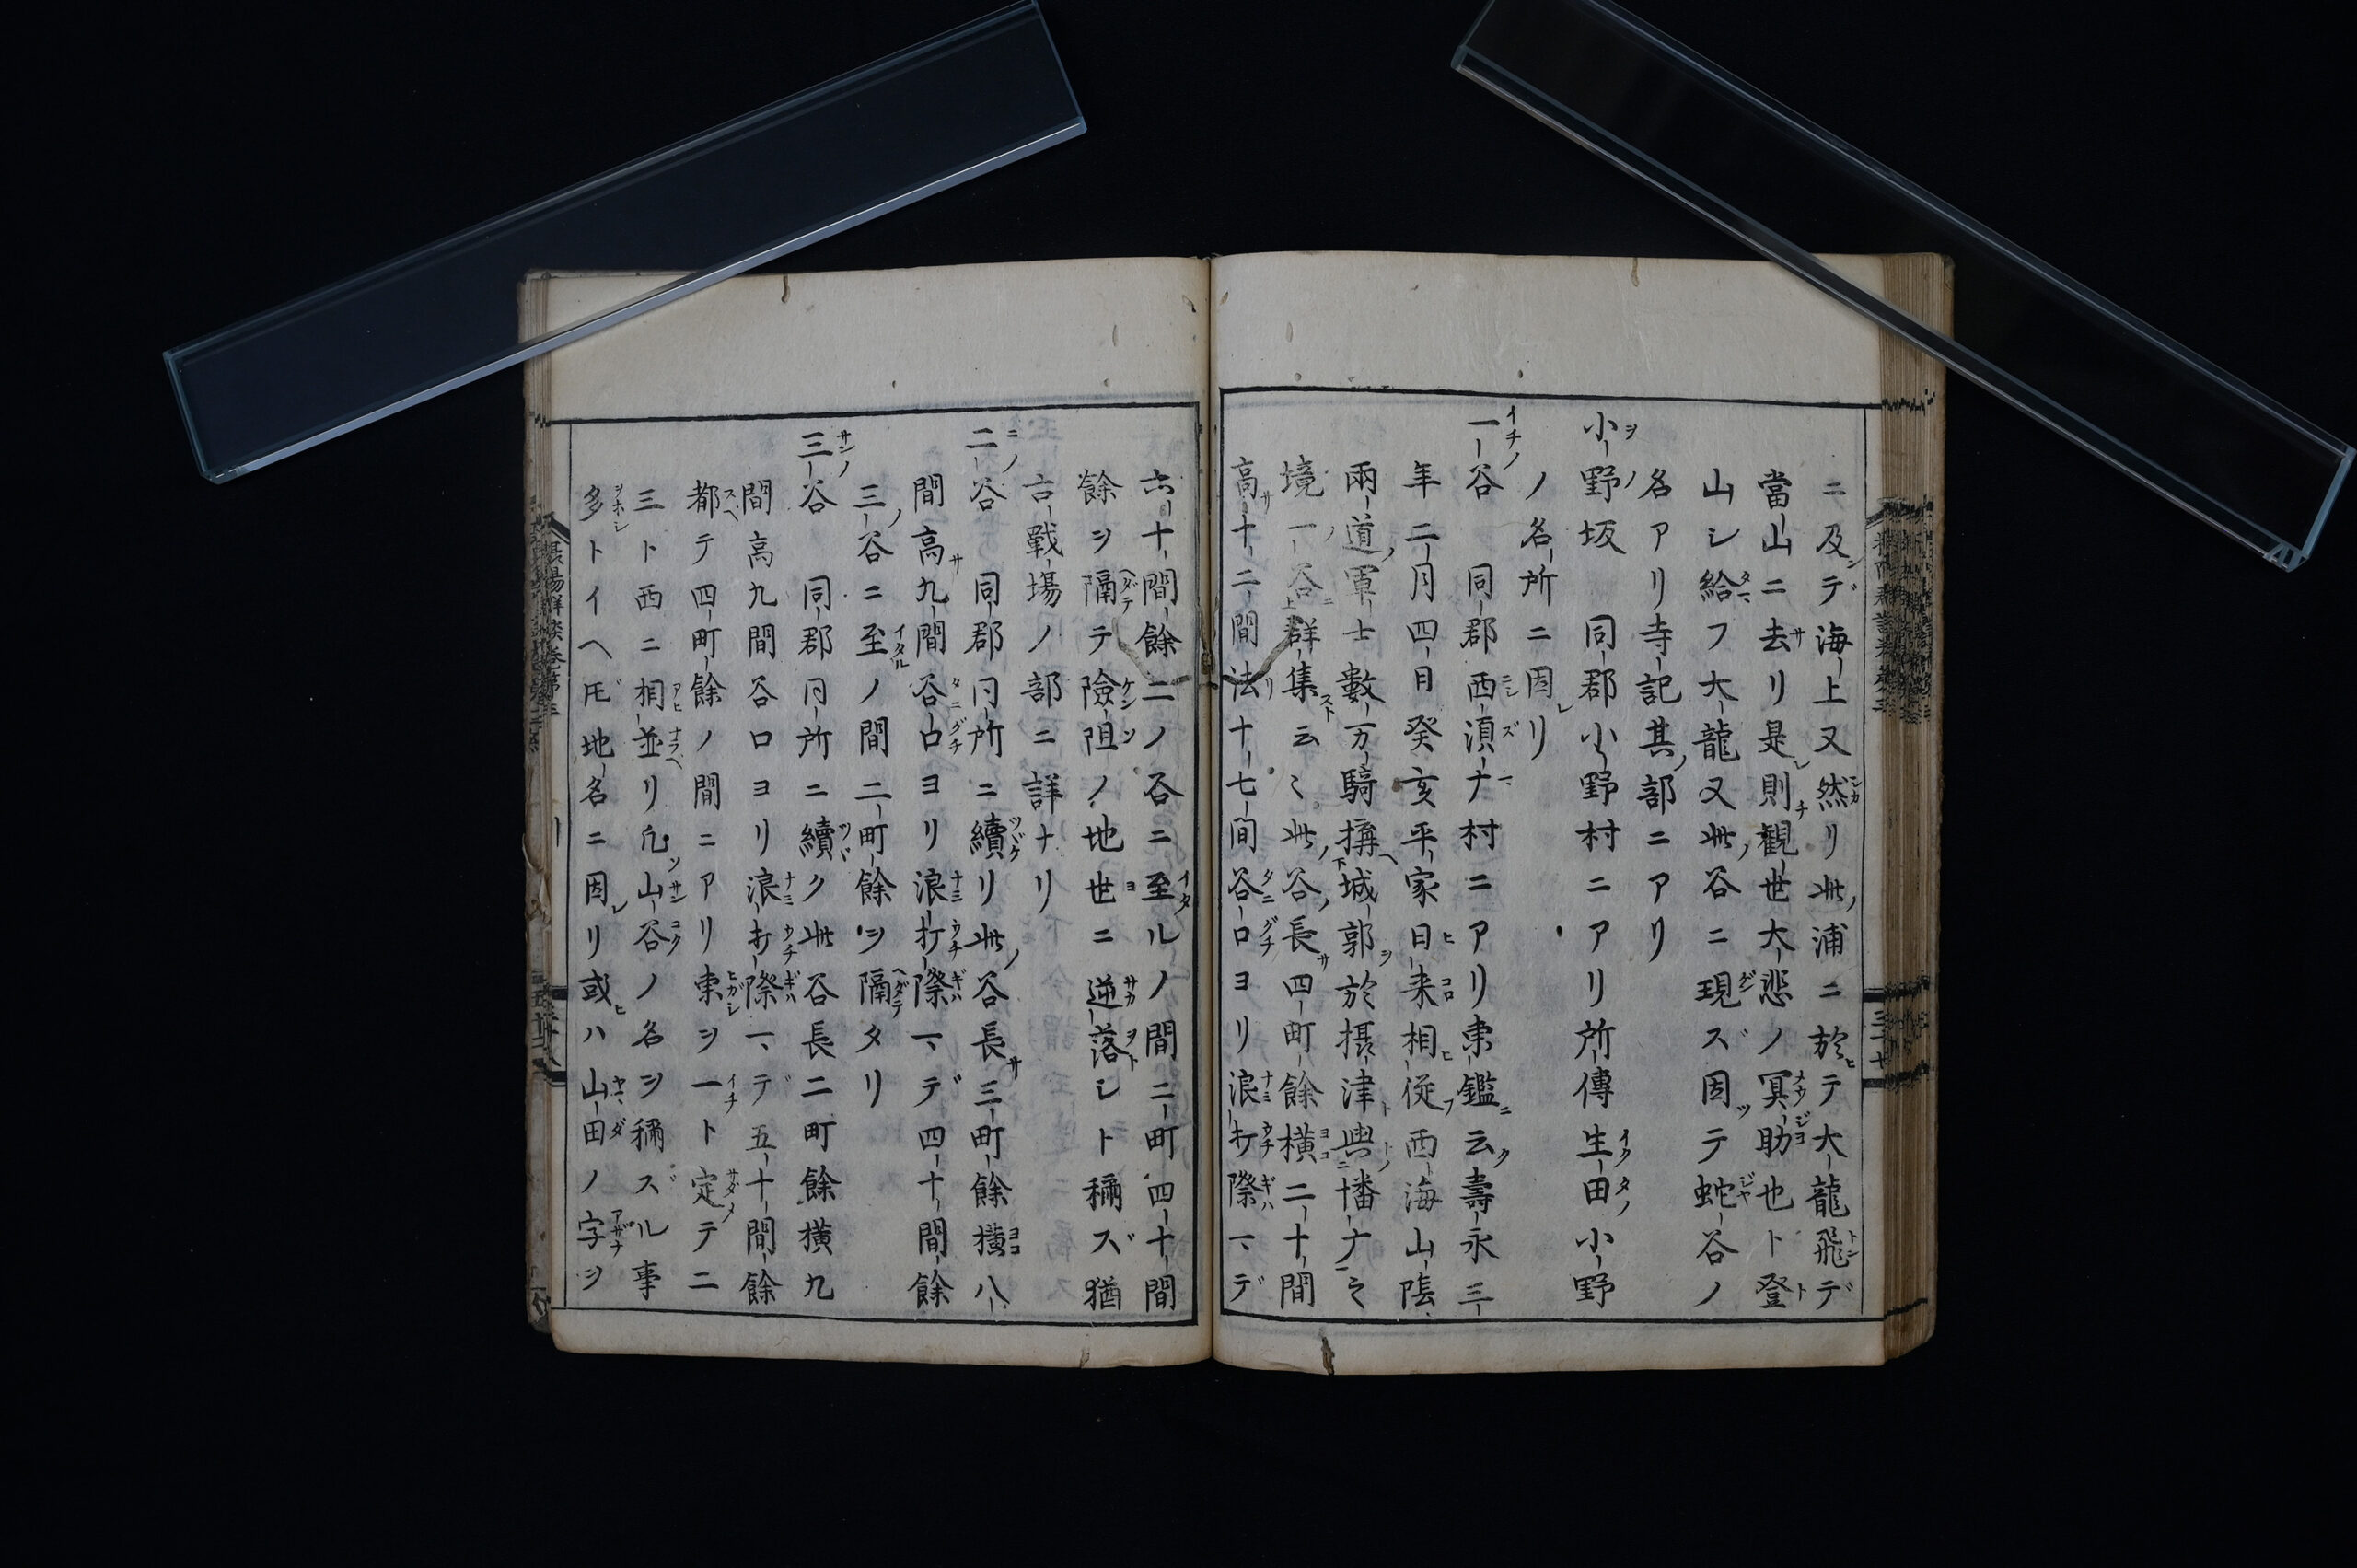 ニ及デ海上又然リ此浦ニ於テ大龍飛デ
當山ニ去リ是則観世大悲ノ冥助也ト登
山シ給フ大龍又此谷ニ現ズ因テ蛇谷ノ
名アリ寺記其部ニアリ
小野坂 同郡小野村ニアリ所傳生田小野
ノ名所ニ因リ
一谷 同郡西須ナ村ニアリ東鑑云壽永三
年二月四日癸亥平家日来相従西海山陰
兩道軍士數万騎搆城郭於摂津與播ナ之
境一谷群集云〻此谷長四町餘横二十間
高十二間法十七間谷口ヨリ浪打際一デ
六十間餘二ノ谷ニ至ルノ間二町四十間
餘ヲ隔テ險阻ノ地世ニ逆落シト稱ズ猶
古戰塲ノ部ニ詳ナリ
二谷 同郡同所ニ續リ此谷長三町餘横八
間高九間谷口ヨリ浪打際一デ四十間餘
三谷ニ至ノ間二町餘ヲ隔タリ
三谷 同郡同所ニ續ク此谷長二町餘横九
間高九間谷口ヨリ浪打際一デ五十間餘
都テ四町餘ノ間ニアリ東ヲ一ト定テ二
三ト西ニ相並リ凡山谷ノ名ヲ稱スル事
多トイヘ𪜈地名ニ因リ或ハ山田ノ字ヲ